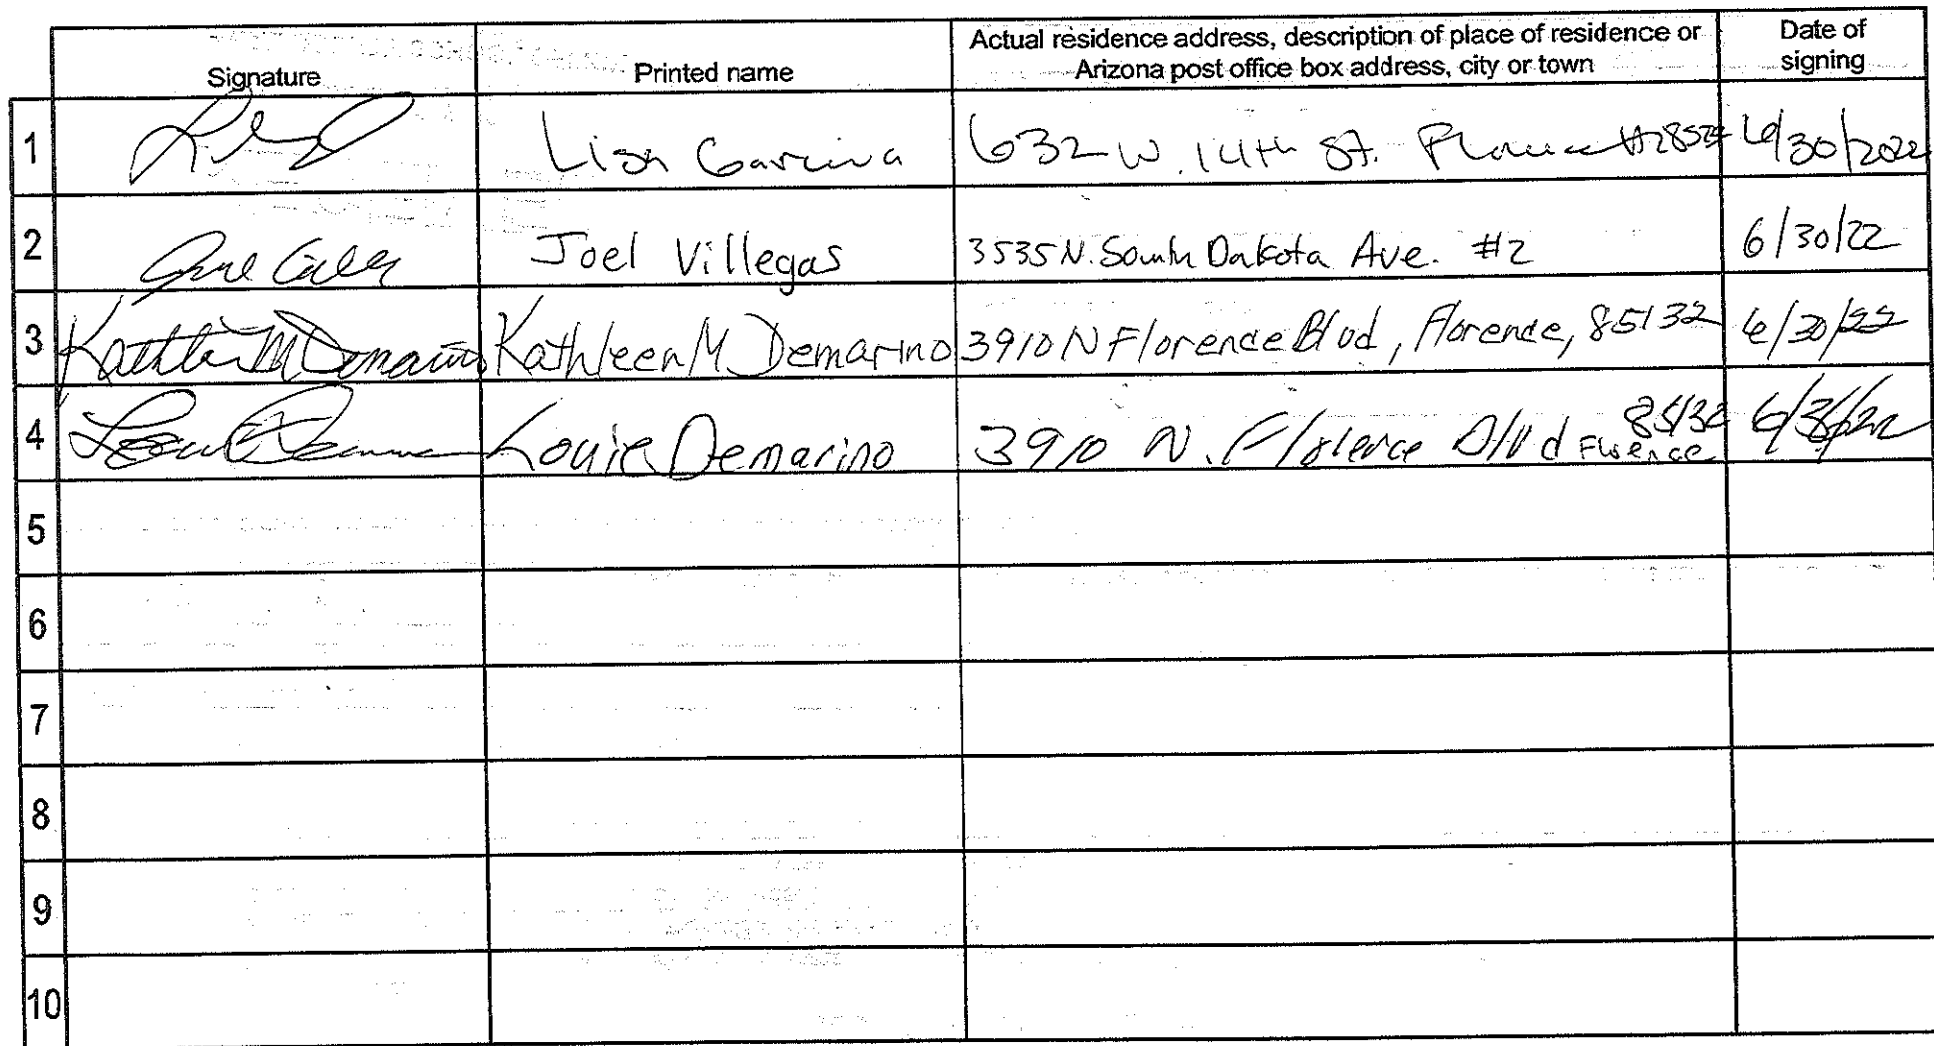 Signature Printed name Actual residence address, description of place of residence or Arizona post office box address, city or town Date of signing
1 Lisa Garcia 632 W. 14th St. Florence 6/30/2022
2 Joel Villegas 3535 N. South Dakota Ave. #2 6/30/22
3 Kathleen M Demarino Kathleen M Demarino 3910 N Florence Blvd, Florence, 85132 6/30/22
4 Louie Demarino 3910 N. Florence Blvd Florence 85132 6/30/22
5
6
7
8
9
10